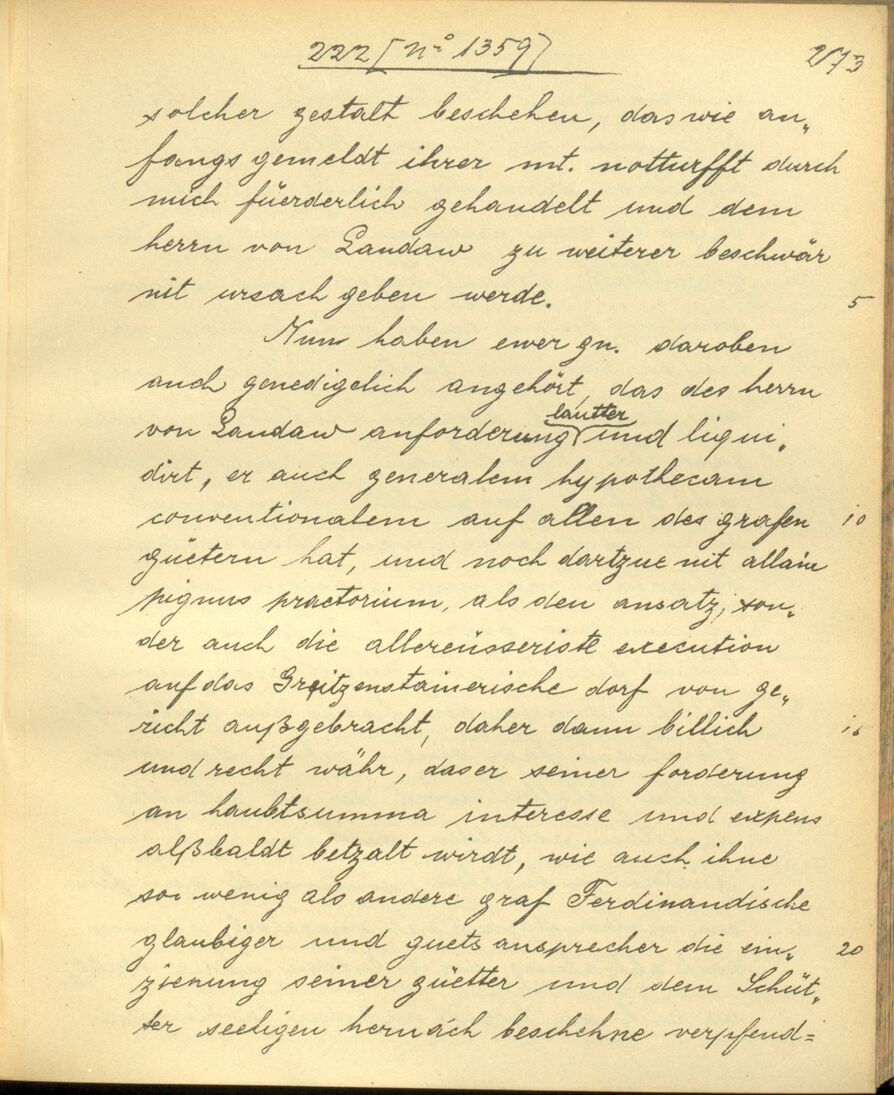 222 [Nº 1359] 273
solcher gestalt beschehen, das wie an„
fangs gemeldt ihrer mt. notturfft durch
mich füerderlich gehandelt und dem
herrn von Landaw zu weiterer beschwär
nit ursach geben werde. 5
Nun haben ewer gn. daroben
auch genedigelich angehört, das des herrn
von Landaw anforderung lautter und liqui„
dirt, er auch generalem hypothecam
conventionalem auf allen des grafen 10
güetern hat, und noch dartzue nit allain
pignus praetorium, als den ansatz, son„
der auch die allereüsseriste execution
auf das Greitzenstainerische dorf von ge„
richt außgebracht, daher dann billich 15
und recht währ, das er seiner forderung
an haubtsumma interesse und expens
alßbaldt betzalt wirdt, wie auch ihne
so wenig als andere graf Ferdinandische
glaubiger und guets ansprecher die ein„ 20
ziehung seiner güetter und dem Schüt„
ter seeligen hernach beschehne verpfend=